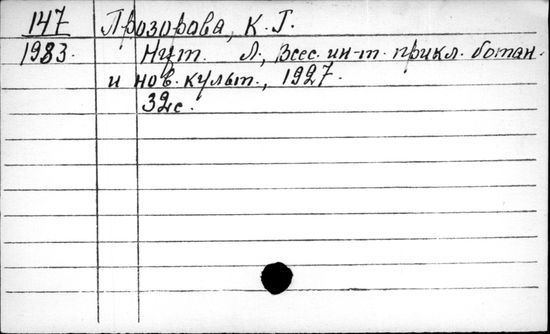 147 Прозорова, К. Г.
1983. Нут. Л., Всес. ин-т. прикл. ботан.
и нов. культ., 1927.
32с.